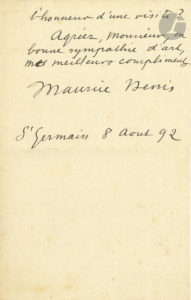 l'honneur d'une visite?
Agréez, monsieur, en
bonne sympathie d'art,
mes meilleurs compliments
Maurice Denis
St Germain 8 Aout 92